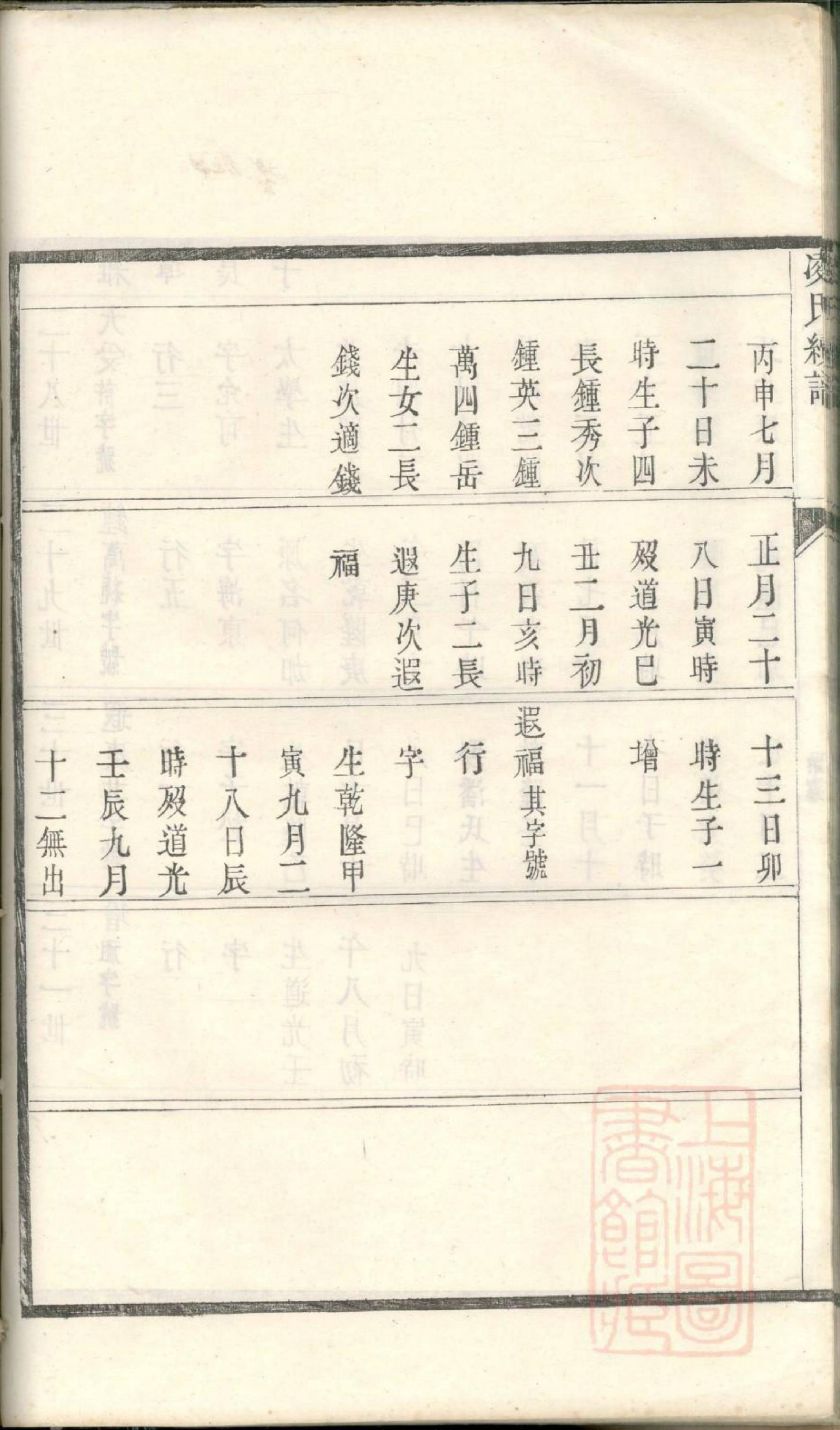 凌氏
丙申七月
二十日未
時生子四
長鍾秀次
鍾英三鍾
萬四鍾岳
生女二長
錢次適錢
正月二十
八日寅時
歿道光巳
丑二月初
九日亥時
生子二長
遐庚次遐
福
十三日卯
時生子一
增
遐福其字號
行
字
生乾隆甲
寅九月二
十八日辰
時歿道光
壬辰九月
十二無出
上海圖
書館藏